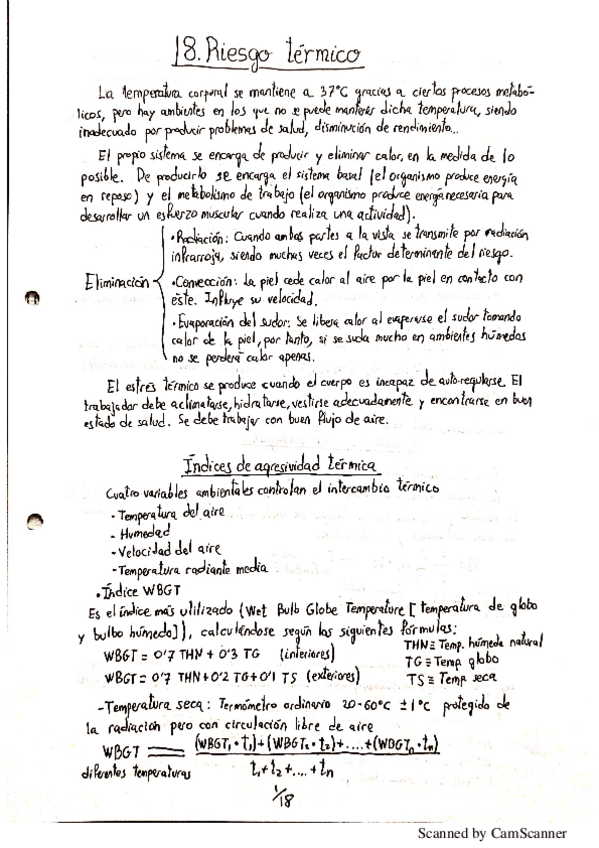 18. Riesgo térmico
La temperatura corporal se mantiene a 37°C gracias a ciertos procesos metabó-
licos, pero hay ambientes en los que no se puede mantener dicha temperatura, siendo
inadecuado por producir problemas de salud, disminución de rendimiento...
El propio sistema se encarga de producir y eliminar calor, en la medida de lo
posible. De producirlo se encarga el sistema basal (el organismo produce energía
en reposo) y el metabolismo de trabajo (el organismo produce energía necesaria para
desarrollar un esfuerzo muscular cuando realiza una actividad).
Eliminación
• Radiación: Cuando ambas partes a la vista se transmite por radiación
infrarroja, siendo muchas veces el factor determinante del riesgo.
• Convección: La piel cede calor al aire por la piel en contacto con
este. Influye su velocidad.
• Evaporación del sudor: Se libera calor al evaporarse el sudor tomando
calor de la piel, por tanto, si se suda mucho en ambientes húmedos
no se perderá calor apenas.
El estrés térmico se produce cuando el cuerpo es incapaz de auto-regularse. El
trabajador debe aclimatarse, hidratarse, vestirse adecuadamente y encontrarse en buen
estado de salud. Se debe trabajar con buen flujo de aire.
Índices de agresividad térmica
Cuatro variables ambientales controlan el intercambio térmico
- Temperatura del aire
- Humedad
- Velocidad del aire
- Temperatura radiante media
• Índice WBGT
Es el índice más utilizado (Wet Bulb Globe Temperature [temperatura de globo
y bulbo húmedo]), calculándose según las siguientes fórmulas:
WBGT = 0'7 THN + 0'3 TG (interiores)
WBGT = 0'7 THN + 0'2 TG + 0'1 TS (exteriores)
THN ≡ Temp. húmeda natural
TG ≡ Temp globo
TS ≡ Temp seca
- Temperatura seca: Termómetro ordinario 20-60°C ±1°C protegido de
la radiación pero con circulación libre de aire
WBGT = (WBGT₁·t₁)+(WBGT₂·t₂)+....+(WBGTₙ·tₙ)
diferentes temperaturas t₁+t₂+....+tₙ
1/18
Scanned by CamScanner